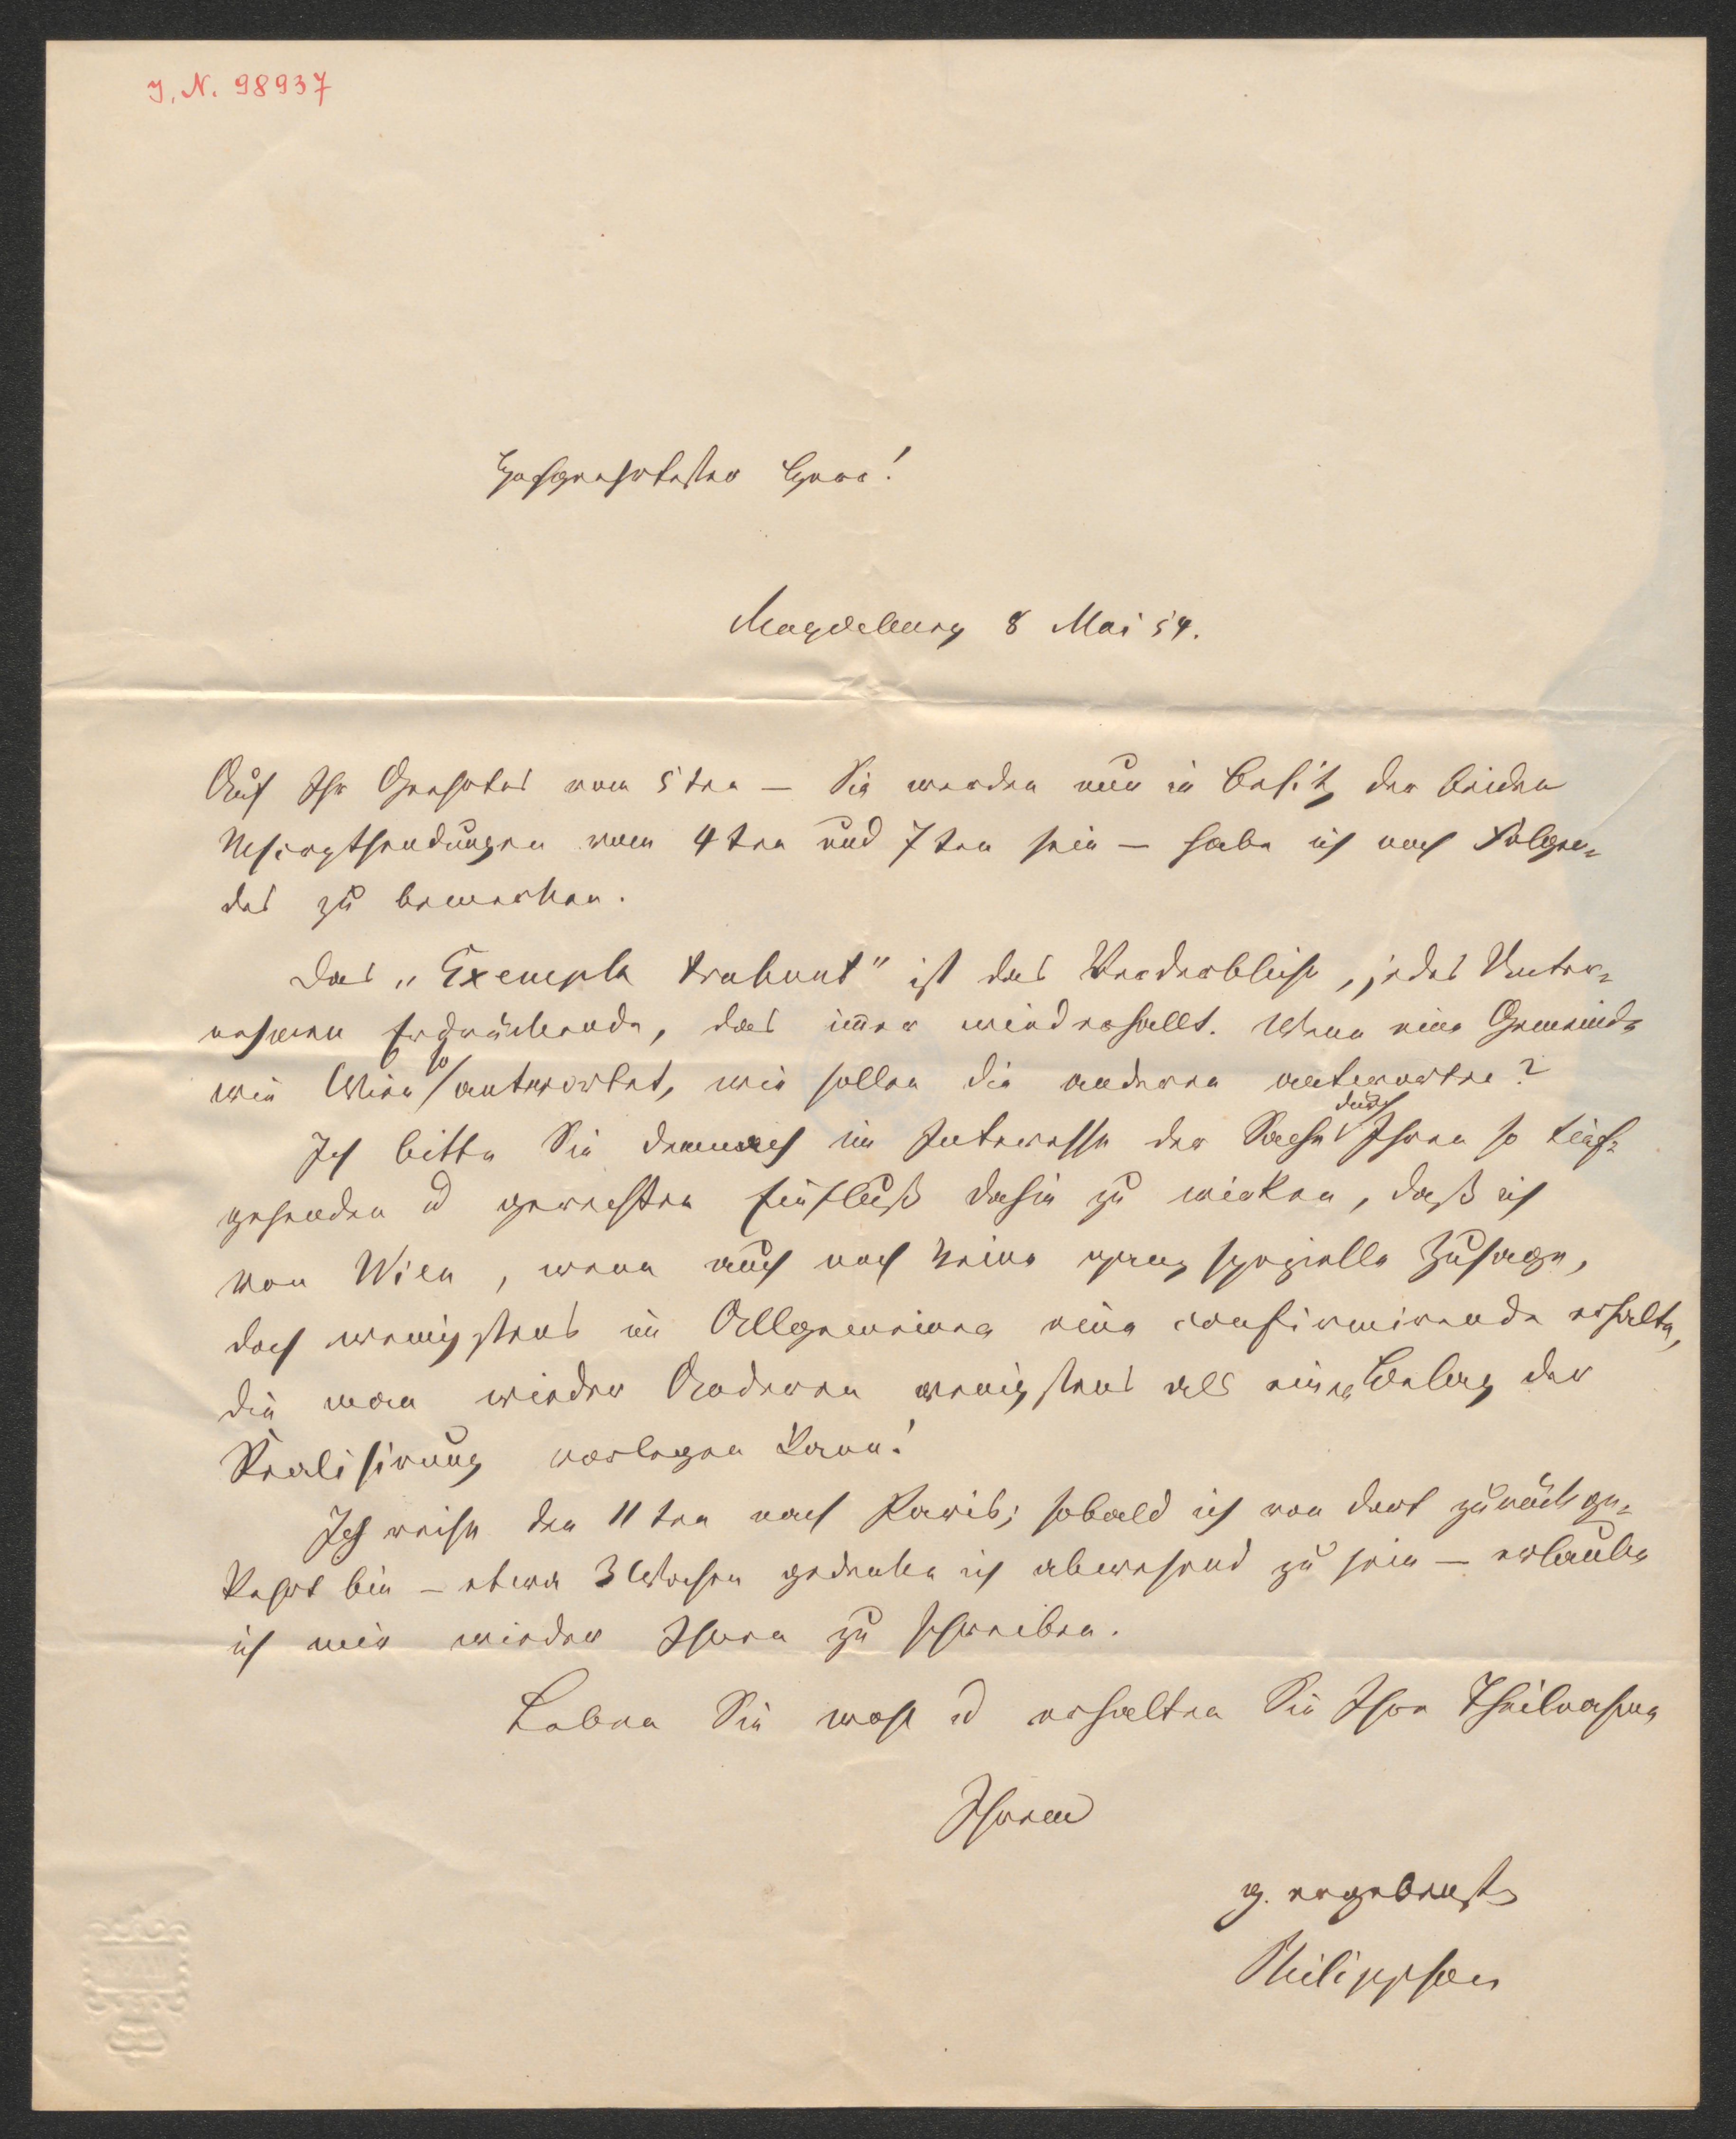 J. N. 98937
Hochgeehrtester Herr!
Magdeburg 8 Mai 54.
Auf Ihr Geehrtes vom 5ten — Sie werden nun in Besitz der beiden
vom 4ten und 7ten sein — habe ich noch Folgen=
des zu bemerken.
Das „Exempla trahunt" ist das Verderbliche, jedes Unter=
nehmen Erdrückende, das immer wiederhallt. Wenn eine Gemeinde
wie Wien so antwortet, wie sollen die anderen antworten?
Ich bitte Sie demnach im Interesse der Sache durch Ihren so tief=
gehenden u gerechten Einfluß dahin zu wirken, daß ich
von Wien, wenn auch noch keine ganz spezielle Zusage,
doch wenigstens im Allgemeinen eine confirmirende erhalte,
die man wieder Anderen wenigstens als einen Beleg der
Realisirung vorlegen kann!
Ich reise den 11ten nach Paris; sobald ich von dort zurückge=
kehrt bin — etwa 3 Wochen gedenke ich abwesend zu sein — erlaube
ich mir wieder Ihnen zu schreiben.
Leben Sie wohl u erhalten Sie Ihre Theilnahme
Ihrem
g. ergebenst
Philippson